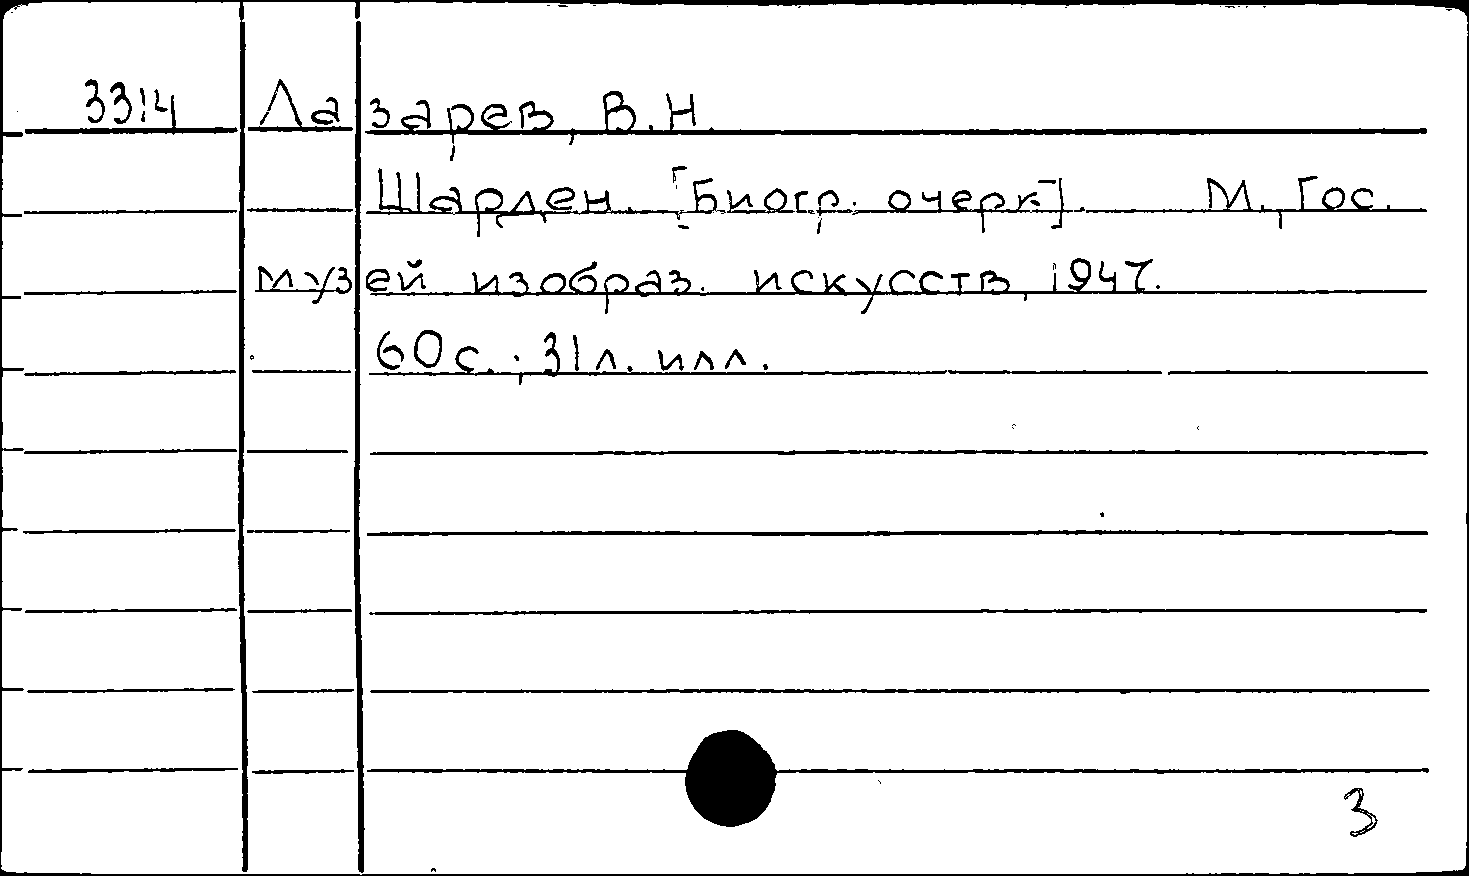 3314 Лазарев, В.Н.
Шарден. [Биогр. очерк]. М., Гос.
музей изобраз. искусств, 1947.
60 с.; 31 л. илл.
3